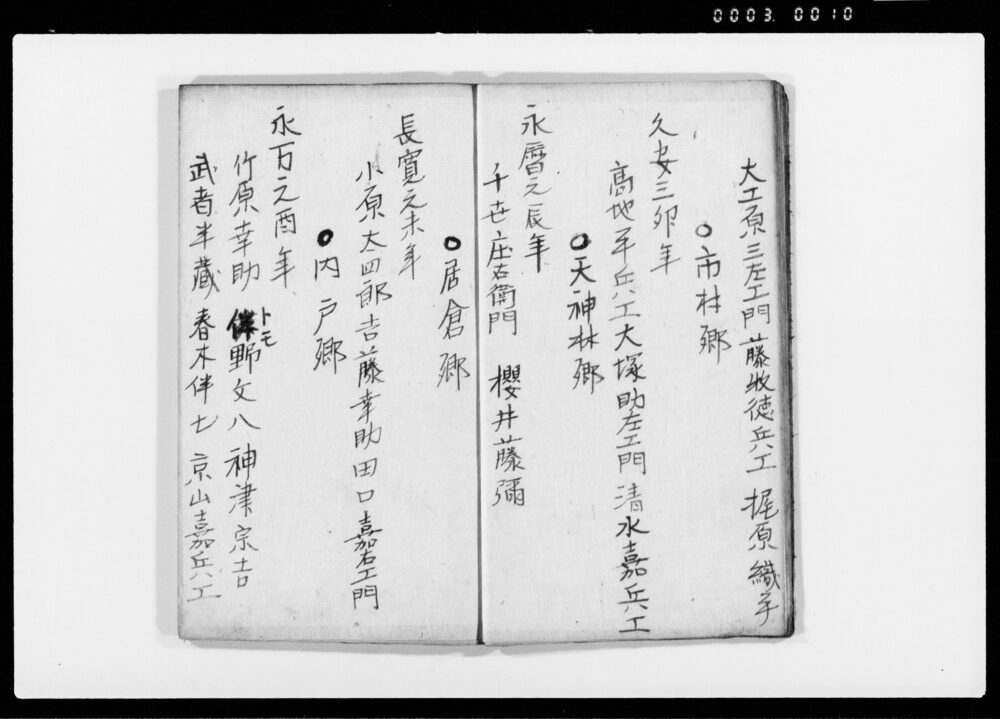 0003. 0010
大工原三左エ門 藤牧徳兵エ 梶原織平
○市村郷
久安三卯年
高地平兵エ 大塚助左エ門 清水嘉兵エ
○天神林郷
永暦元辰年
千世庄右衛門 櫻井藤彌
○居倉郷
長寛元未年
小原太四郎吉 藤幸助 田口嘉右エ門
○内戸郷
永万元酉年
竹原幸助 伴野文八 神津宗吉
トモ
武者半藏 春木伴七 京山嘉兵エ